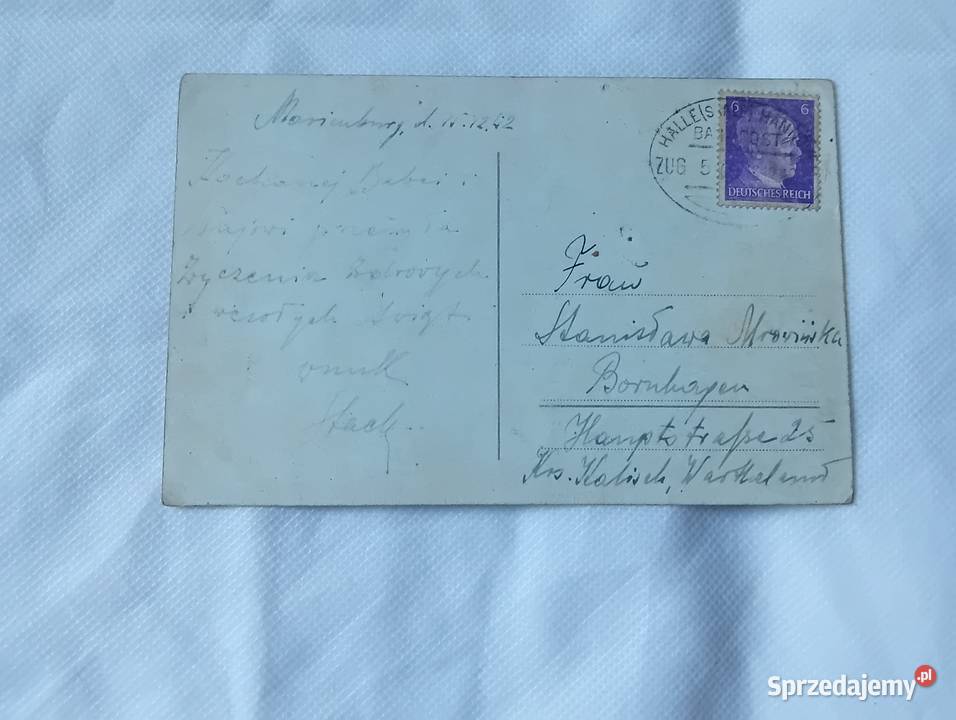 Marienburg, d. 15.12.42
Kochanej Babci i
przesyła
Życzenia Zdrowych
i wesołych Świąt
wnuk
Stach
HALLE(S
BA POST
ZUG 5
6 6
DEUTSCHES REICH
Frau
Stanisława
Bornhagen
Hauptstraße 25
Krs. Kalisch, Wartheland
Sprzedajemy.pl